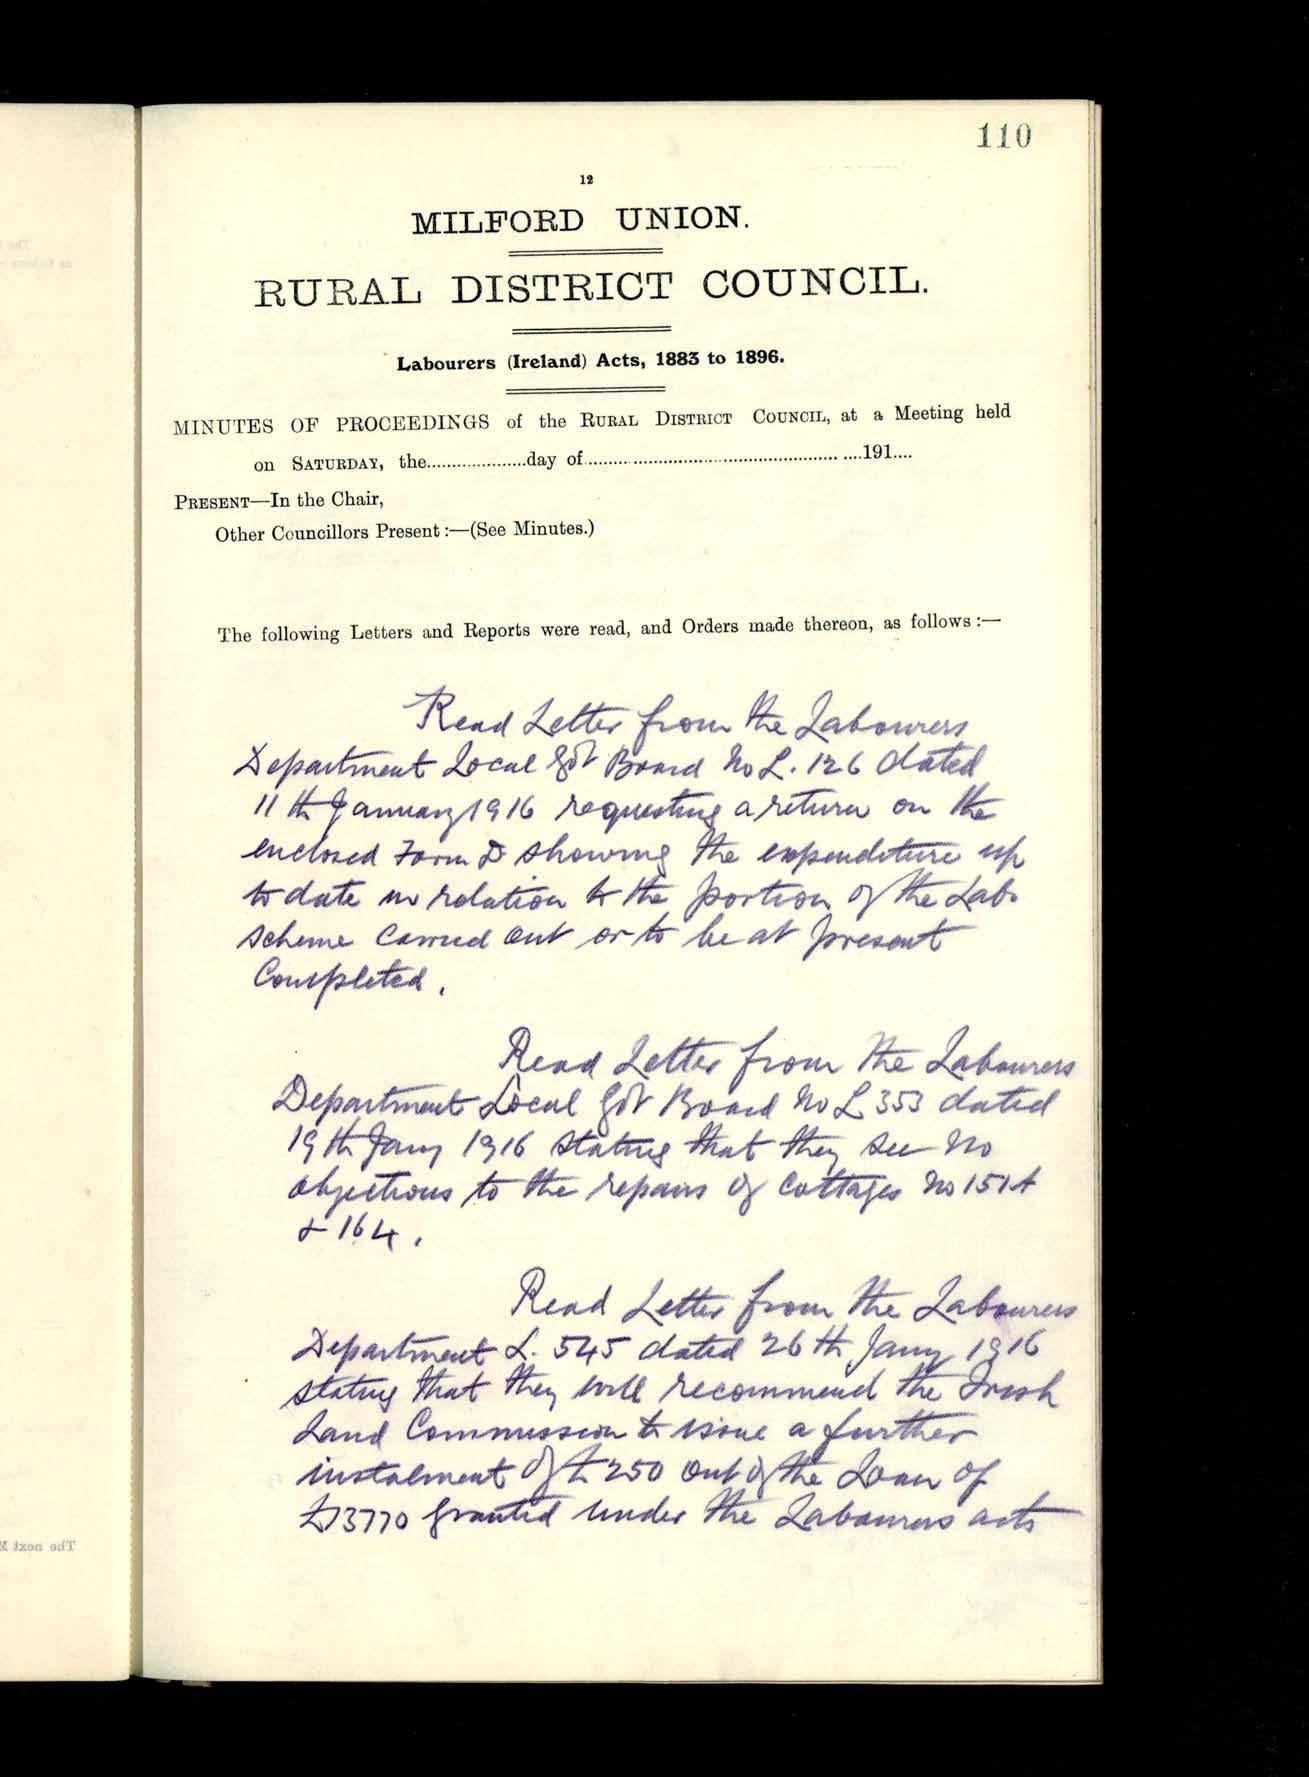 110
12
MILFORD UNION.
RURAL DISTRICT COUNCIL.
Labourers (Ireland) Acts, 1883 to 1896.
MINUTES OF PROCEEDINGS of the RURAL DISTRICT COUNCIL, at a Meeting held
on SATURDAY, the....................day of........................................................191....
PRESENT—In the Chair,
Other Councillors Present:—(See Minutes.)
The following Letters and Reports were read, and Orders made thereon, as follows:—
Read Letter from the Labourers
Department Local Gov Board No L. 126 dated
11th January 1916 requesting a return on the
enclosed Form D showing the expenditure up
to date in relation to the portion of the Lab.
scheme carried out or to be at present
Completed.
Read Letter from the Labourers
Department Local Gov Board No L 353 dated
19th Jany 1916 stating that they see no
objections to the repairs of cottages No 151A
& 164.
Read Letter from the Labourers
Department L. 545 dated 26th Jany 1916
stating that they will recommend the Irish
Land Commission to issue a further
instalment of £250 out of the Loan of
£13770 granted under the Labourers acts